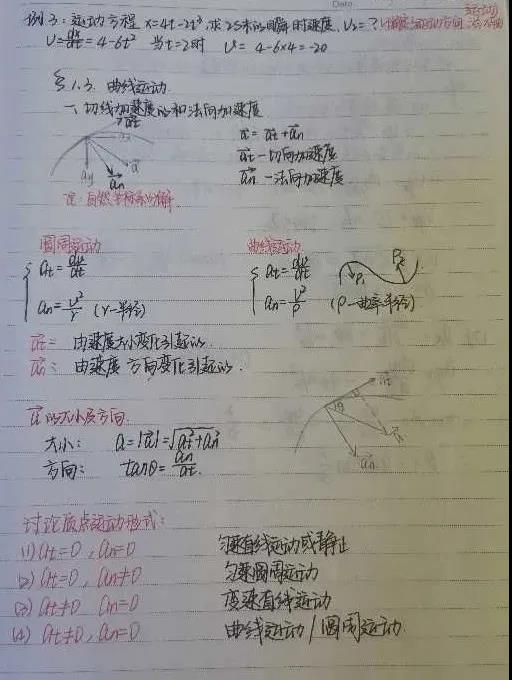 例3：运动方程 x=4t-2t³,求2s末的瞬时速度,V₂=?
V=dx/dt=4-6t² 当t=2时 V=4-6×4=-20
§1.3. 曲线运动
一、切线加速度和法向加速度
a⃗t
ax
ay
a⃗n
a⃗
a⃗=a⃗t+a⃗n
a⃗t-切向加速度
a⃗n-法向加速度
注：自然坐标系分解
圆周运动
at=dv/dt
an=v²/r (r-半径)
曲线运动
at=dv/dt
an=v²/ρ (ρ-曲率半径)
ρ₁
ρ₂
a⃗t= 由速度大小变化引起的.
a⃗n: 由速度方向变化引起的.
a⃗的大小及方向
大小: a=|a⃗|=√at²+an²
方向: tanθ=an/at.
a⃗t
θ
a⃗
a⃗n
讨论质点运动形式：
(1) at=0, an=0 匀速直线运动或静止
(2) at=0, an≠0 匀速圆周运动
(3) at≠0 an=0 变速直线运动
(4) at≠0, an=0 曲线运动/圆周运动